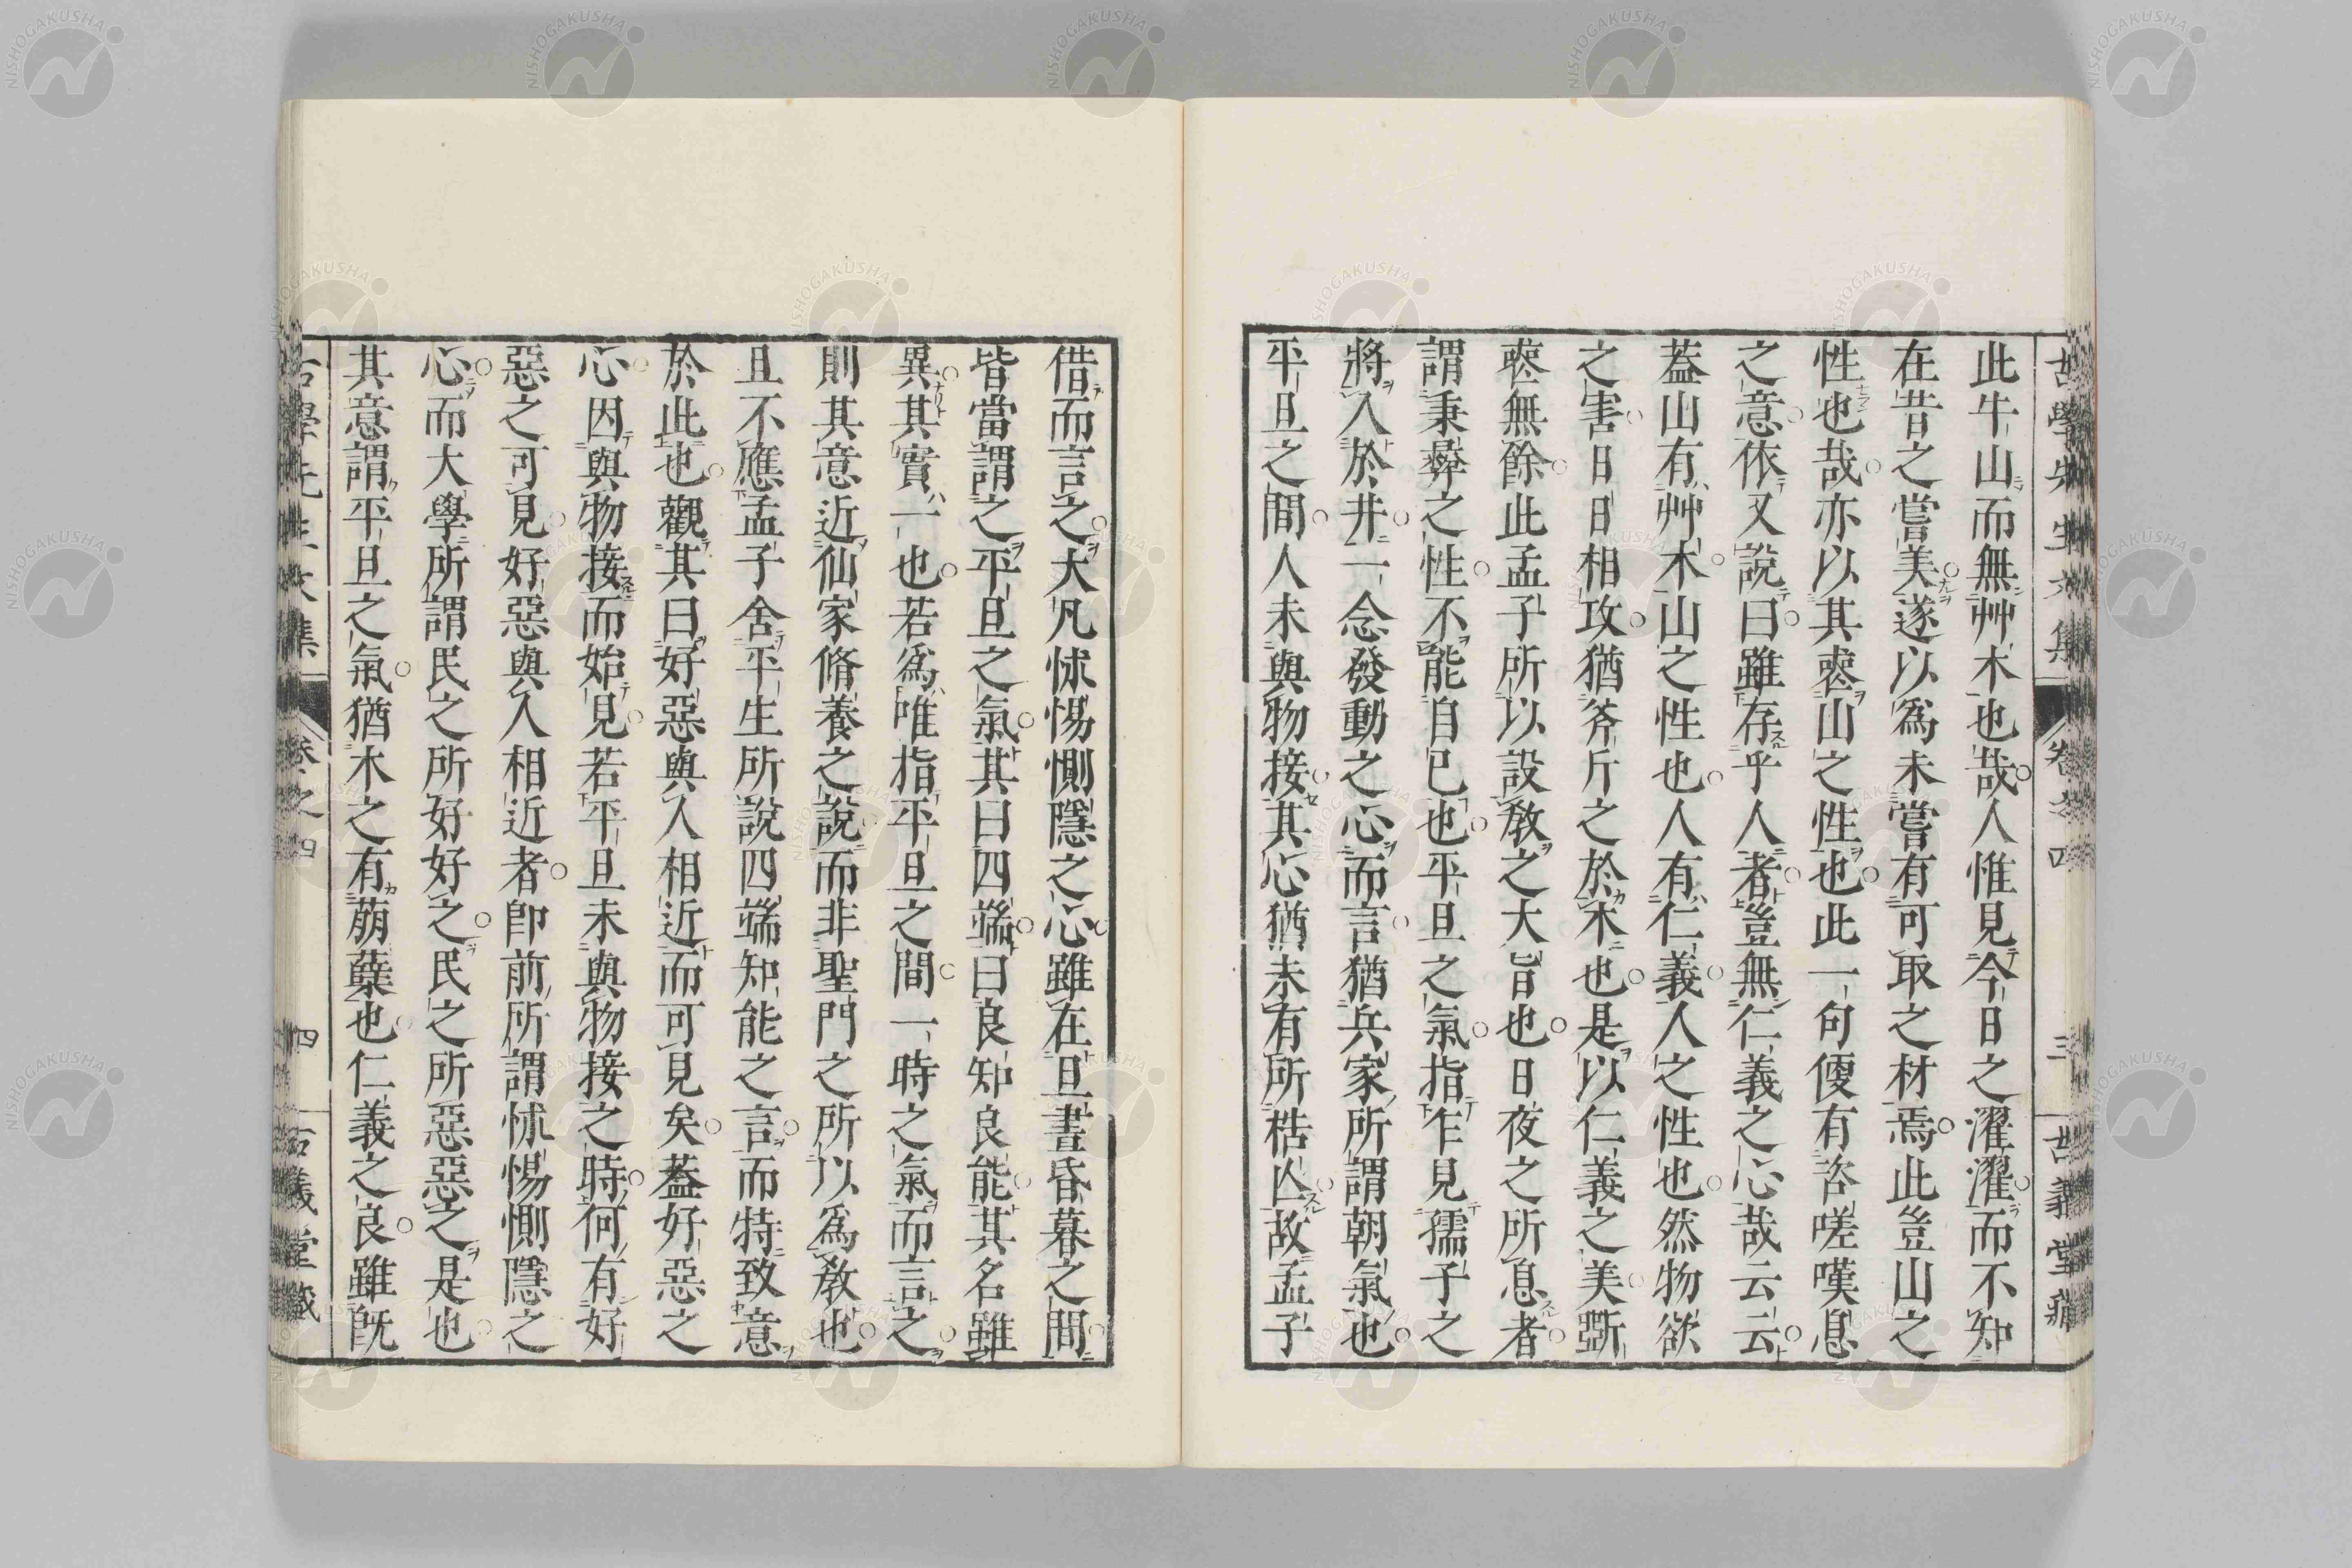 古學先生文集 卷之四 三 古義堂藏
此牛山而無艸木也哉人惟見今日之濯濯而不知
在昔之嘗美遂以爲未嘗有可取之材焉此豈山之
性也哉亦以其喪山之性也此一句便有咨嗟嘆息
之意依又說曰雖存乎人者豈無仁義之心哉云云
蓋山有艸木山之性也人有仁義人之性也然物欲
之害日日相攻猶斧斤之於木也是以仁義之美斲
喪無餘此孟子所以設敎之大旨也日夜之所息者
謂秉彜之性不能自已也平旦之氣指乍見孺子之
將入於井一念發動之心而言猶兵家所謂朝氣也
平旦之間人未與物接其心猶未有所梏亾故孟子
借而言之大凡怵惕惻隱之心雖在旦晝昏暮之間
皆當謂之平旦之氣其曰四端曰良知良能其名雖
異其實一也若爲唯指平旦之間一時之氣而言之
則其意近仙家脩養之說而非聖門之所以爲敎也
且不應孟子舍平生所說四端知能之言而特致意
於此也觀其曰好惡與人相近而可見矣蓋好惡之
心因與物接而始見若平旦未與物接之時何有好
惡之可見好惡與人相近者卽前所謂怵惕惻隱之
心而大學所謂民之所好好之民之所惡惡之是也
其意謂平旦之氣猶木之有萠蘖也仁義之良雖旣
古學先生文集 卷之四 四 古義堂藏
NISHOGAKUSHA